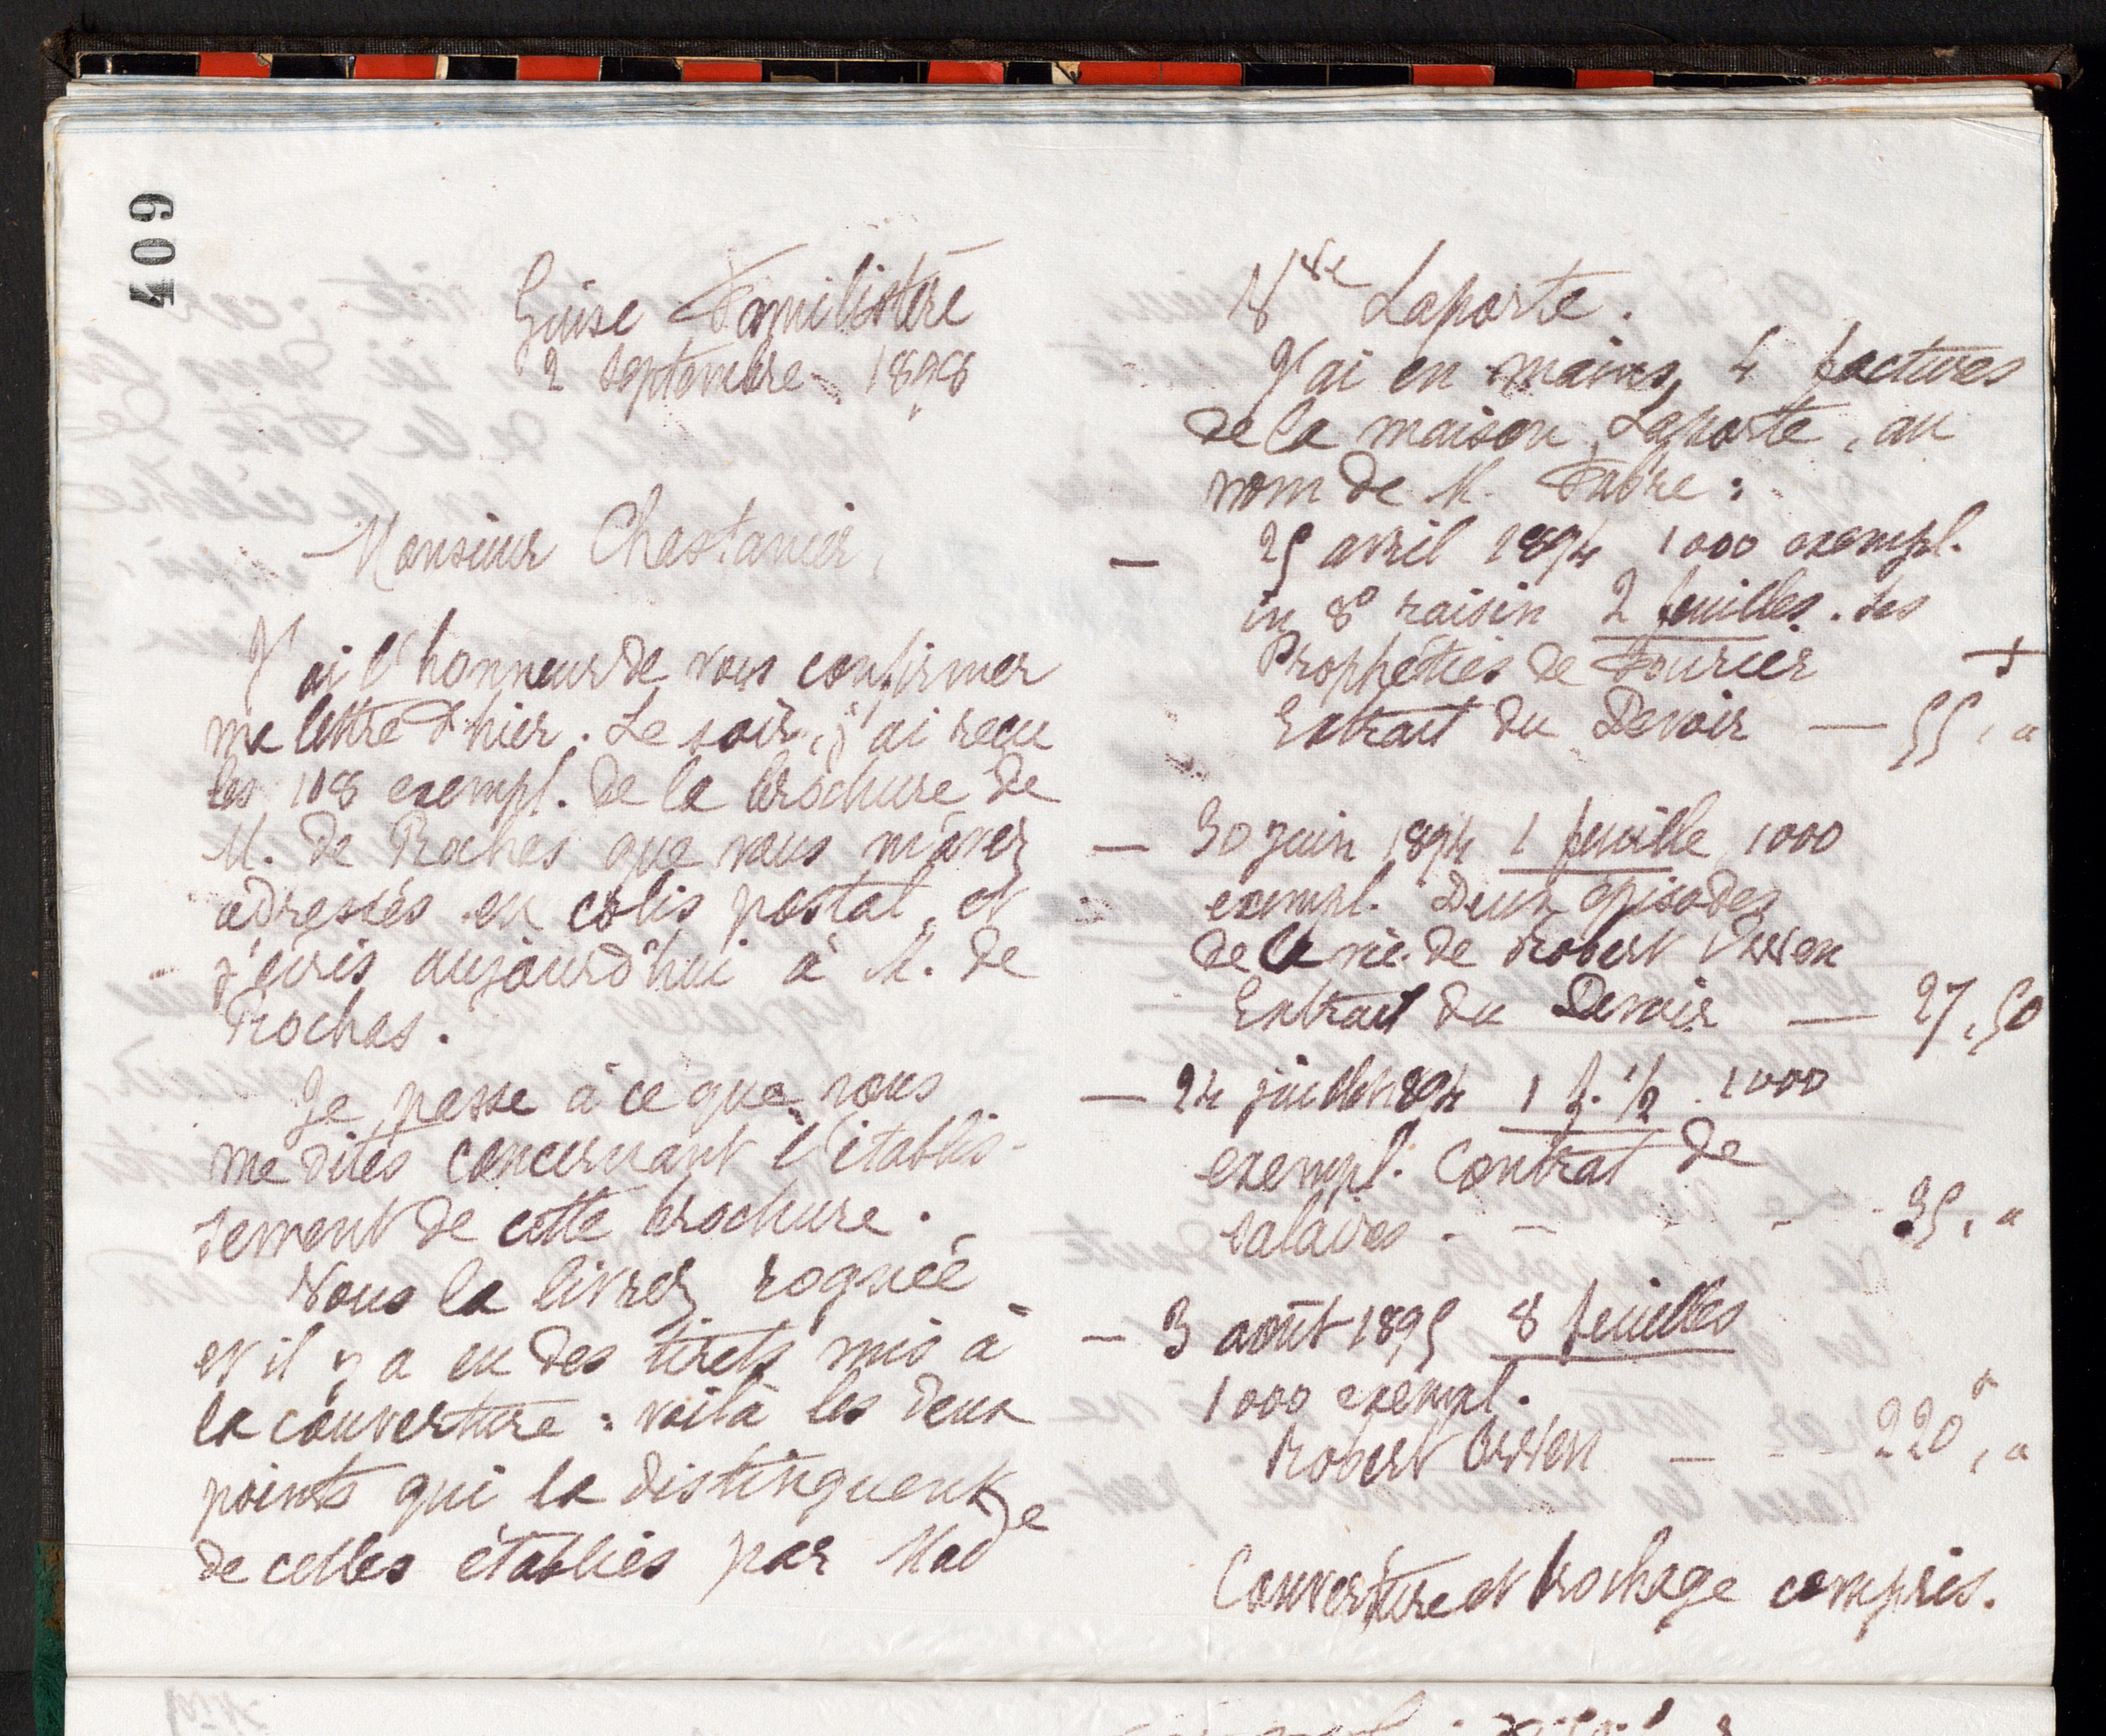 409
Guise Familistère
2 septembre 1898
Monsieur Chastanier,
J'ai l'honneur de vous confirmer
ma lettre d'hier. Le soir, j'ai reçu
les 118 exempl. de la brochure de
M. de Rochas que vous m'avez
adressés en colis postal, et
j'écris aujourd'hui à M. de
Rochas.
Je passe à ce que vous
me dites concernant l'établis-
sement de cette brochure.
Vous la livrez rognée
et il y a eu des tirets mis à
la couverture : voilà les deux
points qui la distinguent
de celles établies par Made
Vve Laporte.
J'ai en mains, 4 factures
de la maison Laporte, au
nom de M. Fabre :
— 25 avril 1894 1000 exempl.
in 8° raisin 2 feuilles. des
Prophéties de Fourier +
Extrait du Devoir — 55, "
— 30 juin 1894 1 feuille 1000
exempl. Deux épisodes
de la vie de Robert Owen
Extrait du Devoir — 27,50
— 24 juillet 1894 1 f. 1/2 . 1000
exempl. Contrat de
salaires . - - - 35, "
— 3 août 1895 8 feuilles
1000 exempl.
Robert Owen — - 220, "
Couverture et brochage compris.